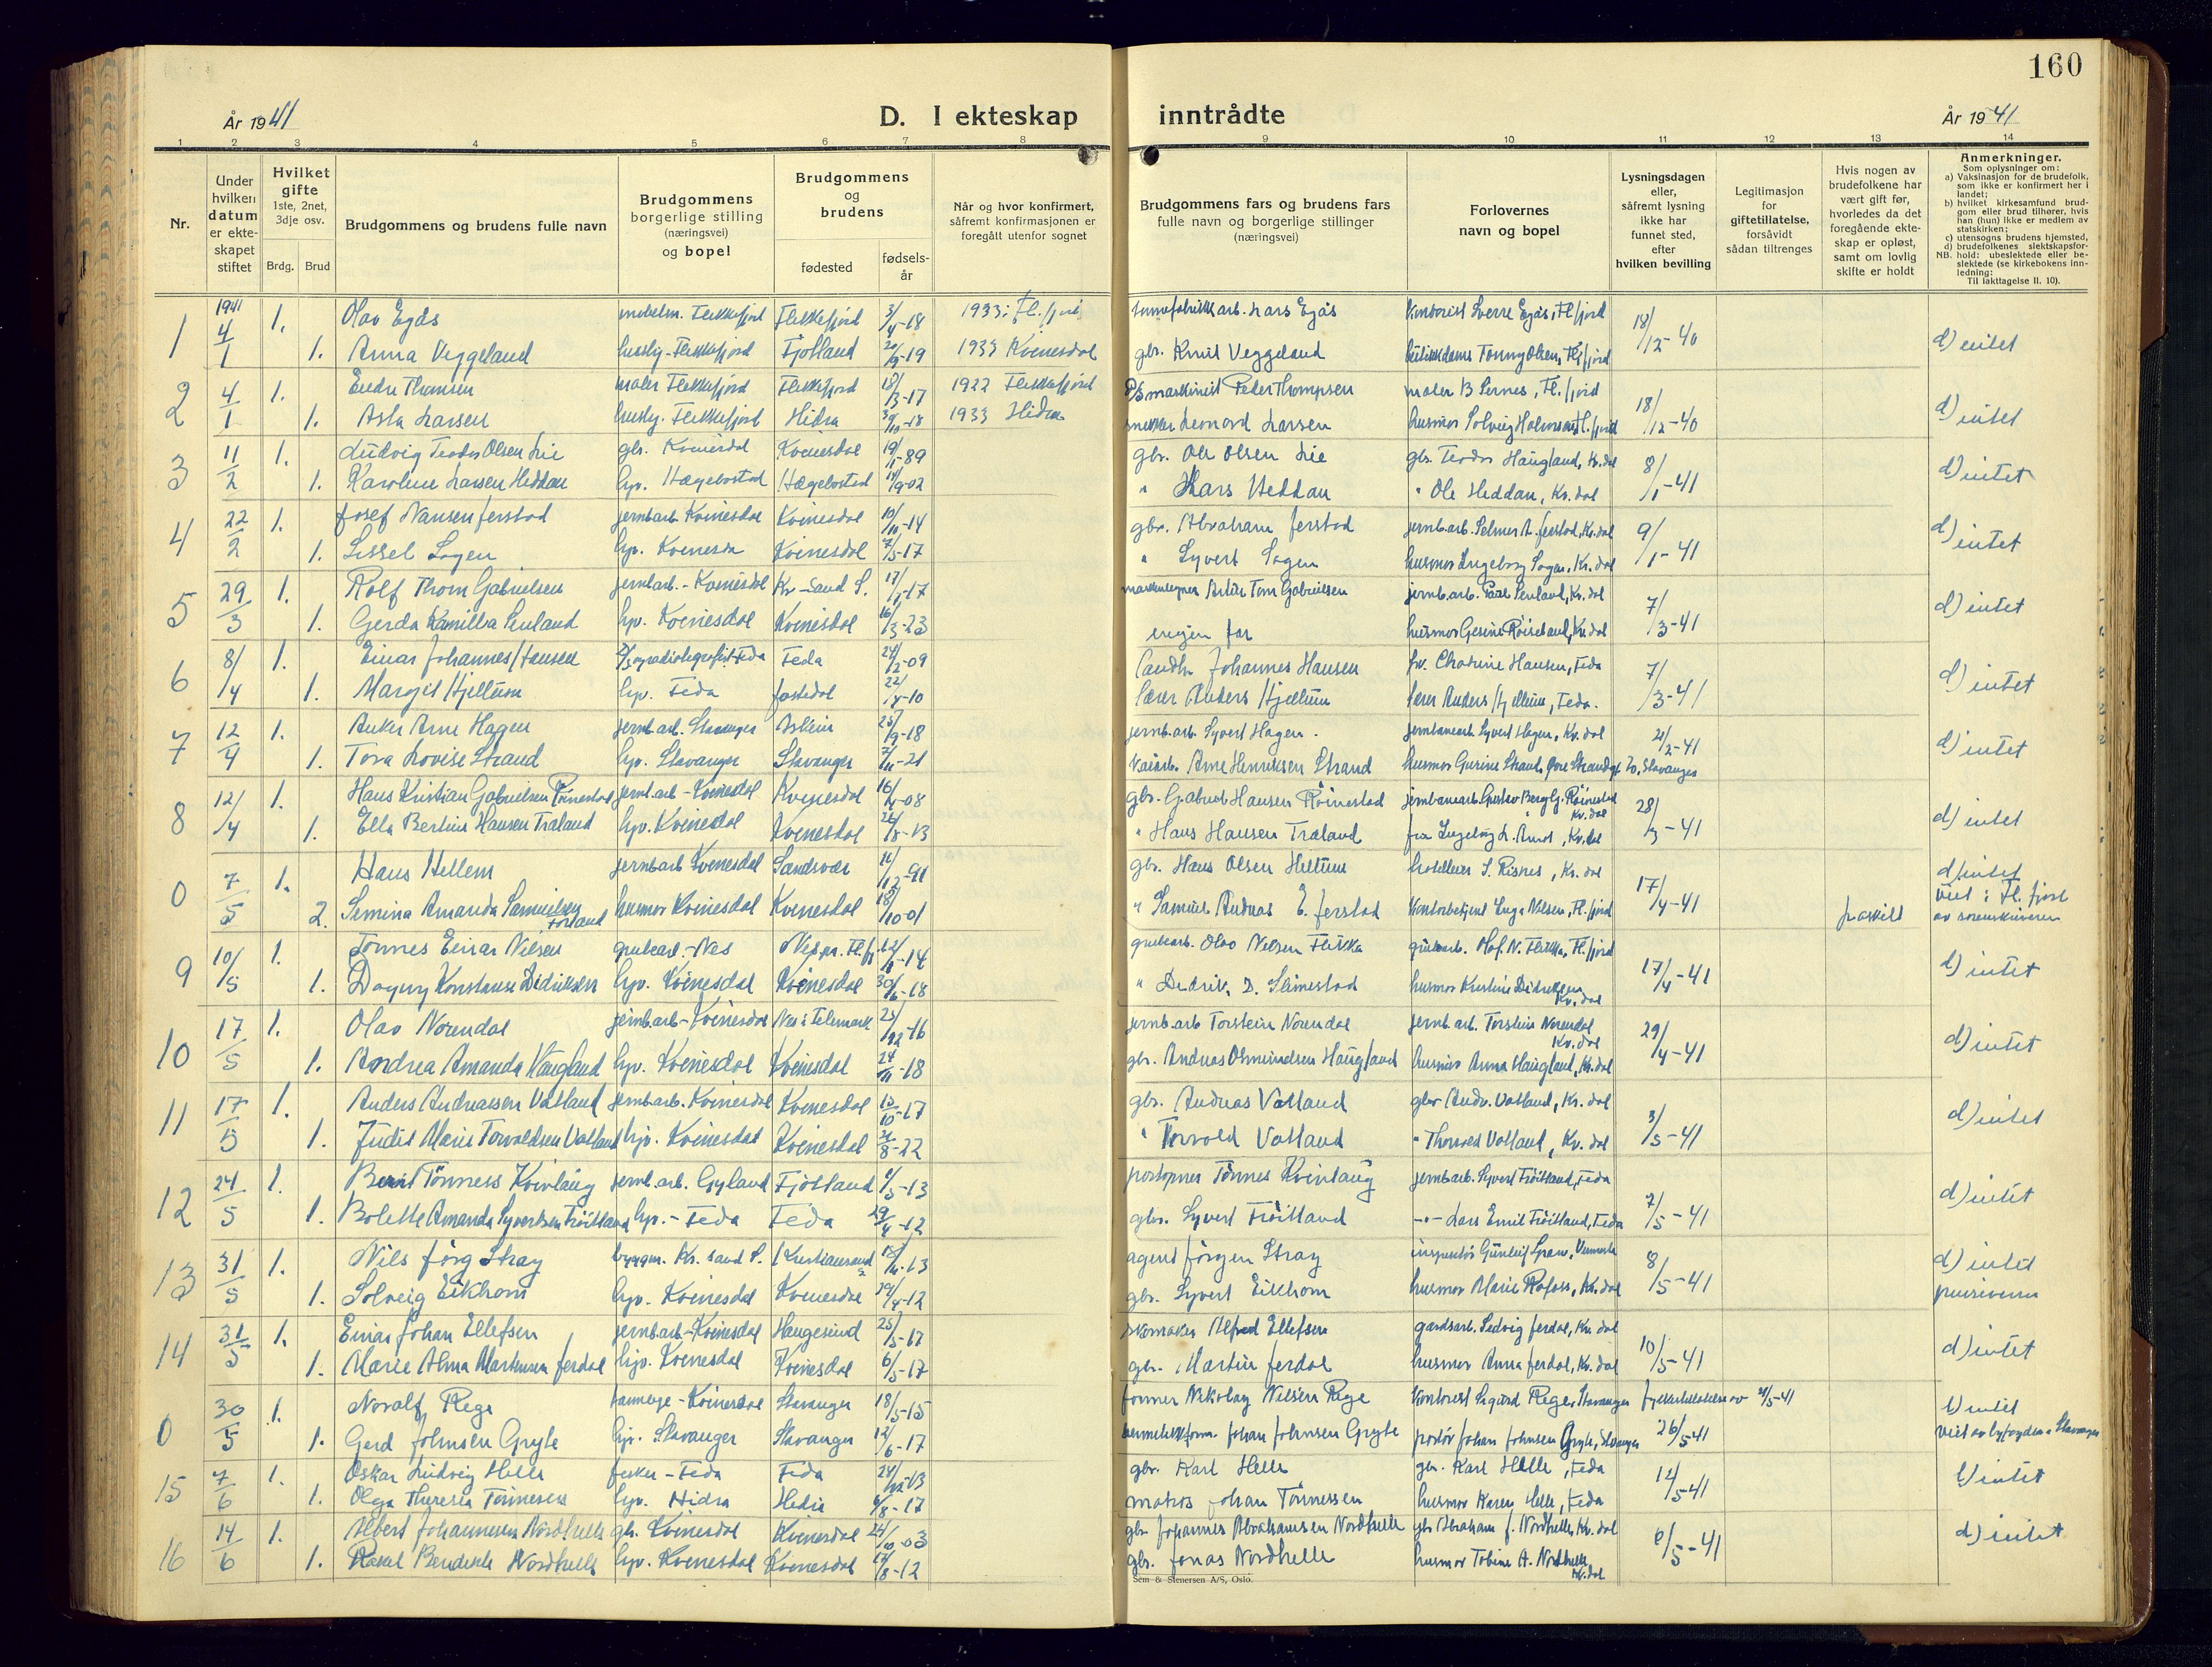 160
År 1941
D. I ekteskap inntrådte
År 1941
1 2 3 4 5 6 7 8 9 10 11 12 13 14
Nr.
Under hvilken datum er ekteskapet stiftet
Hvilket gifte 1ste, 2net, 3dje osv.
Brdg. Brud
Brudgommens og brudens fulle navn
Brudgommens borgerlige stilling (næringsvei) og bopel
Brudgommens og brudens
fødested
fødselsår
Når og hvor konfirmert, såfremt konfirmasjonen er foregått utenfor sognet
Brudgommens fars og brudens fars fulle navn og borgerlige stillinger (næringsvei)
Forlovernes navn og bopel
Lysningsdagen eller, såfremt lysning ikke har funnet sted, efter hvilken bevilling
Legitimasjon for giftetillatelse, forsåvidt sådan tiltrenges
Hvis nogen av brudefolkene har vært gift før, hvorledes da det foregående ekteskap er opløst, samt om lovlig skifte er holdt
Anmerkninger.
Som oplysninger om:
a) Vaksinasjon for de brudefolk, som ikke er konfirmert her i landet;
b) hvilket kirkesamfund brudgom eller brud tilhører, hvis han (hun) ikke er medlem av statskirken;
c) utensogns brudens hjemsted,
d) brudefolkenes slektskapsforhold: ubeslektede eller beslektede (se kirkebokens innledning:
NB.
Til iakttagelse II. 10).
1 1941 4/1 1. Olav Egås Flekkefjord Flekkefjord 3/4-18 1933 i Fl.fjord Lars Egås Sverre Egås, Fl.fjord 18/12-40 d) intet
1. Anna Veggeland Flekkefjord Fjotland 1933 Kvinesdal gbr. Knut Veggeland Tonny Olsen, Fl.fjord
2 4/1 1. Endre Thomsen maler Flekkefjord Flekkefjord 18/3-17 1922 Flekkefjord maskinist Peder Thompsen maler B Sernes, Fl.fjord 18/12-40 d) intet
1. Asta Larsen Flekkefjord Hidra 1933 Hidra Leonard Larsen husmor Solveig Fl.fjord
3 11/2 1. Ludvig Teodor Olsen Lie gbr. Kvinesdal Kvinesdal 19/11-89 gbr. Ole Olsen Lie gbr. Teodor Haugland, Kv.dal 8/1-41 d) intet
1. Karoline Larsen Heddan hp. Hægebostad Hægebostad 14/9-02 " Lars Heddan " Ole Heddan, Kv.dal
4 22/2 1. Josef Nansen Jerstad jernb.arb. Kvinesdal Kvinesdal 10/11-14 gbr. Abraham Jerstad jernb.arb. Selmer A. Jerstad, Kv.dal 9/1-41 d) intet
1. Sissel Sagen hp. Kvinesda Kvinesdal 7/5-17 " Syvert Sagen husmor Ingeborg Sagen, Kv.dal
5 29/3 1. Rolf Thom Gabrielsen jernb.arb. - Kvinesdal Kr-sand S. Artur Tom Gabrielsen jernb.arb. Paal Senland, Kv.dal 7/3-41 d) intet
1. Gerda Kamilla Senland hp. Kvinesdal Kvinesdal 16/3-23 ingen far husmor Gesine Røiseland, Kv.dal
6 8/4 1. Einar Johannes Hansen Feda Feda 24/2-09 Johannes Hansen Hansen, Feda 7/3-41 d) intet
1. Margit Hjellum hp. Feda Jostedal 22/4-10 lærer Anders Hjellum lærer Anders Hjellum, Feda.
7 12/4 1. Anker Arne Hagen jernb.arb. Stavanger Askim 25/9-18 jernb.arb. Syvert Hagen. jernbanearb. Syvert Hagen, Kv.dal 21/2-41 d) intet
1. Tora Lovise Strand hp. Stavanger Stavanger 7/11-21 Arne Henriksen Strand husmor Gurine Strand, Øvre Strandgt. 20, Stavanger
8 12/4 1. Hans Kristian Gabrielsen Röinestad jernb.arb - Kvinesdal Kvinesdal 16/4-08 gbr. Gabriel Hansen Röinestad jernbanearb. Gustav Berg G. Röinestad Kv.dal 28/3-41 d) intet
1. Ella Bertine Hansen Træland hp. Kvinesdal Kvinesdal 26/8-13 " Hans Hansen Træland fru Ingeborg Kv.dal
0 7/5 1. Hans Hellem jernb.arb Kvinesdal Sandsvær 11/12-91 gbr. Hans Olsen Hellum hotelleier S. Risnes, Kv.dal 17/4-41 d) intet
2. Semina Amanda Samuelsen Förland husmor Kvinesdal Kvinesdal 18/10-01 " Samuel Andreas E. Jerstad kontorbetjent Inga Nilsen, Fl.fjord fraskilt viet i Fl.fjord av sorenskriveren
9 10/5 1. Tönnes Einar Nilsen grubearb. - Nes Nes pr. Fl.fj. grubearb. Olav Nilsen Flikka grubearb. Olaf N. Flikka, Fl.fjord 17/4-41 d) intet
1. Dagny Konstanse Didriksen hp. Kvinesdal Kvinesdal 30/6-18 " Didrik D. Slimestad husmor Kristine Didriksen Kv.dal
10 17/5 1. Olav Norendal jernb.arb - Kvinesdal Nes i Telemark 25/12-16 jernb.arb Torstein Norendal jernb.arb. Torstein Norendal Kv.dal 29/4-41 d) intet
1. Andrea Amanda Haugland hp. Kvinesdal Kvinesdal 24/11-18 gbr. Andreas Osmundsen Haugland husmor Anna Haugland, Kv.dal
11 17/5 1. Anders Andreassen Vatland jernb.arb. Kvinesdal Kvinesdal 15/10-17 gbr. Andreas Vatland gbr Andr. Vatland, Kv.dal 3/5-41 d) intet
1. Judit Marie Torvaldsen Vatland hp. Kvinesdal Kvinesdal " Torvald Vatland " Thorvald Vatland, Kv.dal
12 24/5 1. Berit Tönness Kvinlaug jernb.arb. Gyland Fjotland postopner Tönnes Kvinlaug jernb.arb. Syvert Tröitland, Feda 7/5-41 d) intet
1. Bolette Amanda Syvertsen Tröitland hp. - Feda Feda 29/4-12 gbr. Syvert Fröitland -"- Lars Emil Fröitland, Feda
13 31/5 1. Nils Jörg Stray byggm. Kr.sand S. Kristiansand agent Jörgen Stray inspektör 8/5-41 d) intet
1. Solveig Eikhom hp. Kvinesdal Kvinesdal gbr. Syvert Eikhom husmor Marie Rafoss, Kv.dal
14 31/5 1. Einar Johan Ellefsen jernb.arb - Kvinesdal Haugesund 25/5-17 skomaker Alfred Ellefsen gardsarb. Sedvig Jerdal, Kv.dal 10/5-41 d) intet
1. Marie Alma Martinsen Jerdal hp. Kvinesdal Kvinesdal 6/5-17 gbr. Martin Jerdal husmor Anna Jerdal, Kv.dal
0 30/5 1. Noralf Rege tannlege - Kvinesdal Stavanger 18/5-15 Nikolay Nilsen Rege kontorist Sigurd Rege, Stavanger d) intet
1. Gerd Johnsen Gryte hp. Stavanger Stavanger 12/6-17 Johan Johnsen Gryte Johan Johnsen Gryte, Stavanger 26/5-41 viet av byfogden i Stavanger
15 7/6 1. Oskar Ludvig Helle fisker - Feda Feda gbr. Karl Helle gbr. Karl Helle, Feda 12/5-41 d) intet
1. Olga Theresia Tönnesen hp. Hidra Hidra matros Johan Tönnessen husmor Karen Helle, Feda
16 14/6 1. Albert Johannesen Nordhelle gbr. Kvinesdal Kvinesdal 24/10-03 gbr Johannes Abrahamsen Nordhelle gbr. Abraham J. Nordhelle, Kv.dal d) intet
1. Rakel Benedikte Nordhelle hp. Kvinesdal Kvinesdal gbr. Jonas Nordhelle husmor Tobine A. Nordhelle Kv.dal
Sem & Stenersen A/S, Oslo.